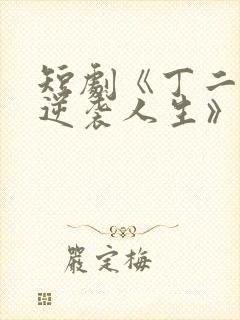 短劇《丁二
逆袭人生》
嚴定梅